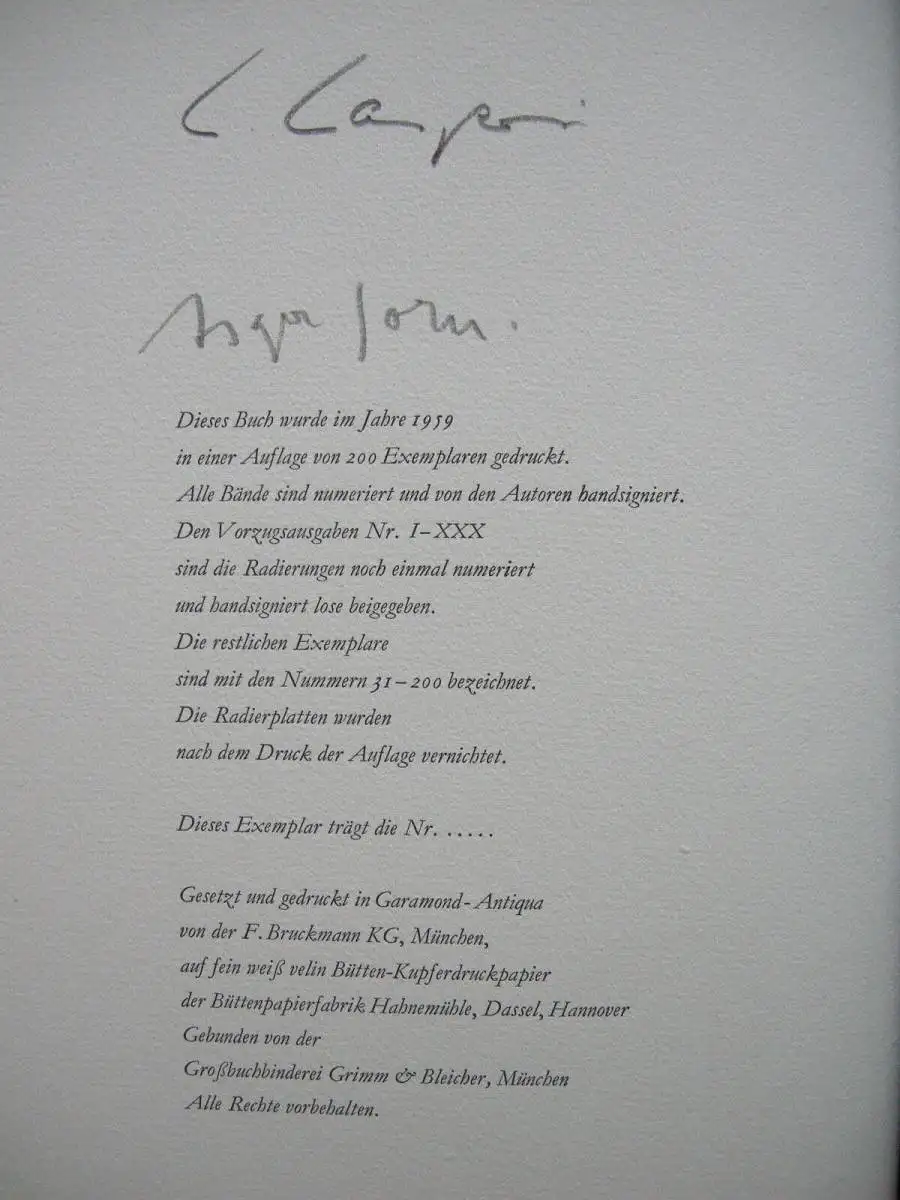 C. Caspari
Asger Jorn.
Dieses Buch wurde im Jahre 1959
in einer Auflage von 200 Exemplaren gedruckt.
Alle Bände sind numeriert und von den Autoren handsigniert.
Den Vorzugsausgaben Nr. I–XXX
sind die Radierungen noch einmal numeriert
und handsigniert lose beigegeben.
Die restlichen Exemplare
sind mit den Nummern 31–200 bezeichnet.
Die Radierplatten wurden
nach dem Druck der Auflage vernichtet.
Dieses Exemplar trägt die Nr. .....
Gesetzt und gedruckt in Garamond-Antiqua
von der F. Bruckmann KG, München,
auf fein weiß velin Bütten-Kupferdruckpapier
der Büttenpapierfabrik Hahnemühle, Dassel, Hannover
Gebunden von der
Großbuchbinderei Grimm & Bleicher, München
Alle Rechte vorbehalten.